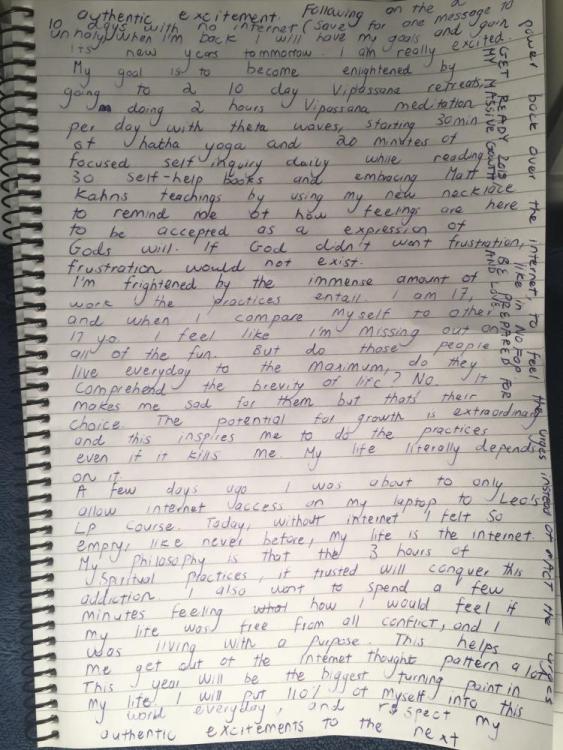 authentic excitement. Following on the
10 days with no internet (save for one message to
unholy) when I'm back I will have my goals and gain
Its new years tommorrow. I am really excited.
My goal is to become enlightened by
going to 2 10 day Vipassana retreats,
doing 2 hours Vipassana meditation
per day with theta waves, starting 30min
of hatha yoga and 20 minutes of
focused self inquiry daily while reading
30 self-help books and embracing Matt
Kahns teachings by using my new necklace
to remind me of how feelings are here
to be accepted as a expression of
Gods will. If God didn't want frustration,
frustration would not exist.
I'm frightened by the immense amount of
work the practices entail. I am 17,
and when I compare myself to other
17 yo I feel like I'm missing out on
all of the fun. But do those people
live everyday to the maximum, do they
comprehend the brevity of life? No. It
makes me sad for them but thats their
choice. The potential for growth is extraordinary
and this inspires me to do the practices
even if it kills me. My life literally depends
on it.
A few days ago I was about to only
allow internet access on my laptop to Leo's
LP course. Today, without internet I felt so
empty, like never before, my life is the internet.
My philosophy is that the 3 hours of
spiritual practices, if trusted will conquer this
addiction. I also want to spend a few
minutes feeling how I would feel if
my life was free from all conflict, and I
was living with a purpose. This helps
me get out of the internet thought pattern a lot.
This year will be the biggest turning point in
my life. I will put 110% of myself into this
word everyday, and respect my
authentic excitements to the next
power back over the internet, to feel the urges instead of ACT the urges
like in NOFAP
GET READY 2018
MY MASSIVE GROWTH
BE PREPARED FOR
AND LOVE